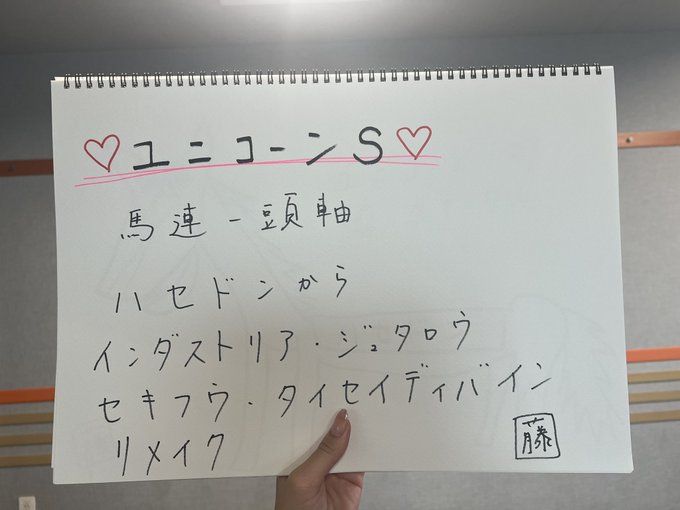 ♡ユニコーンS♡
馬連一頭軸
ハセドンから
インダストリア・ジュタロウ
セキフウ・タイセイディバイン
リメイク
藤